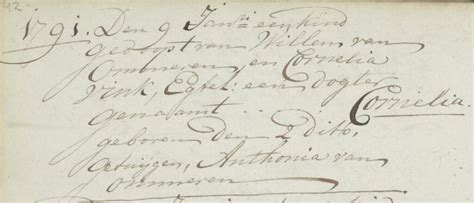 42
1791. Den 9 Janri een kind
gedoopt van Willem van
Ommeren en Cornelia
Vink, Egtel: een dogter
genaamt Cornelia
geboren den 2 dito,
getuijgen, Anthonia van
ommeren